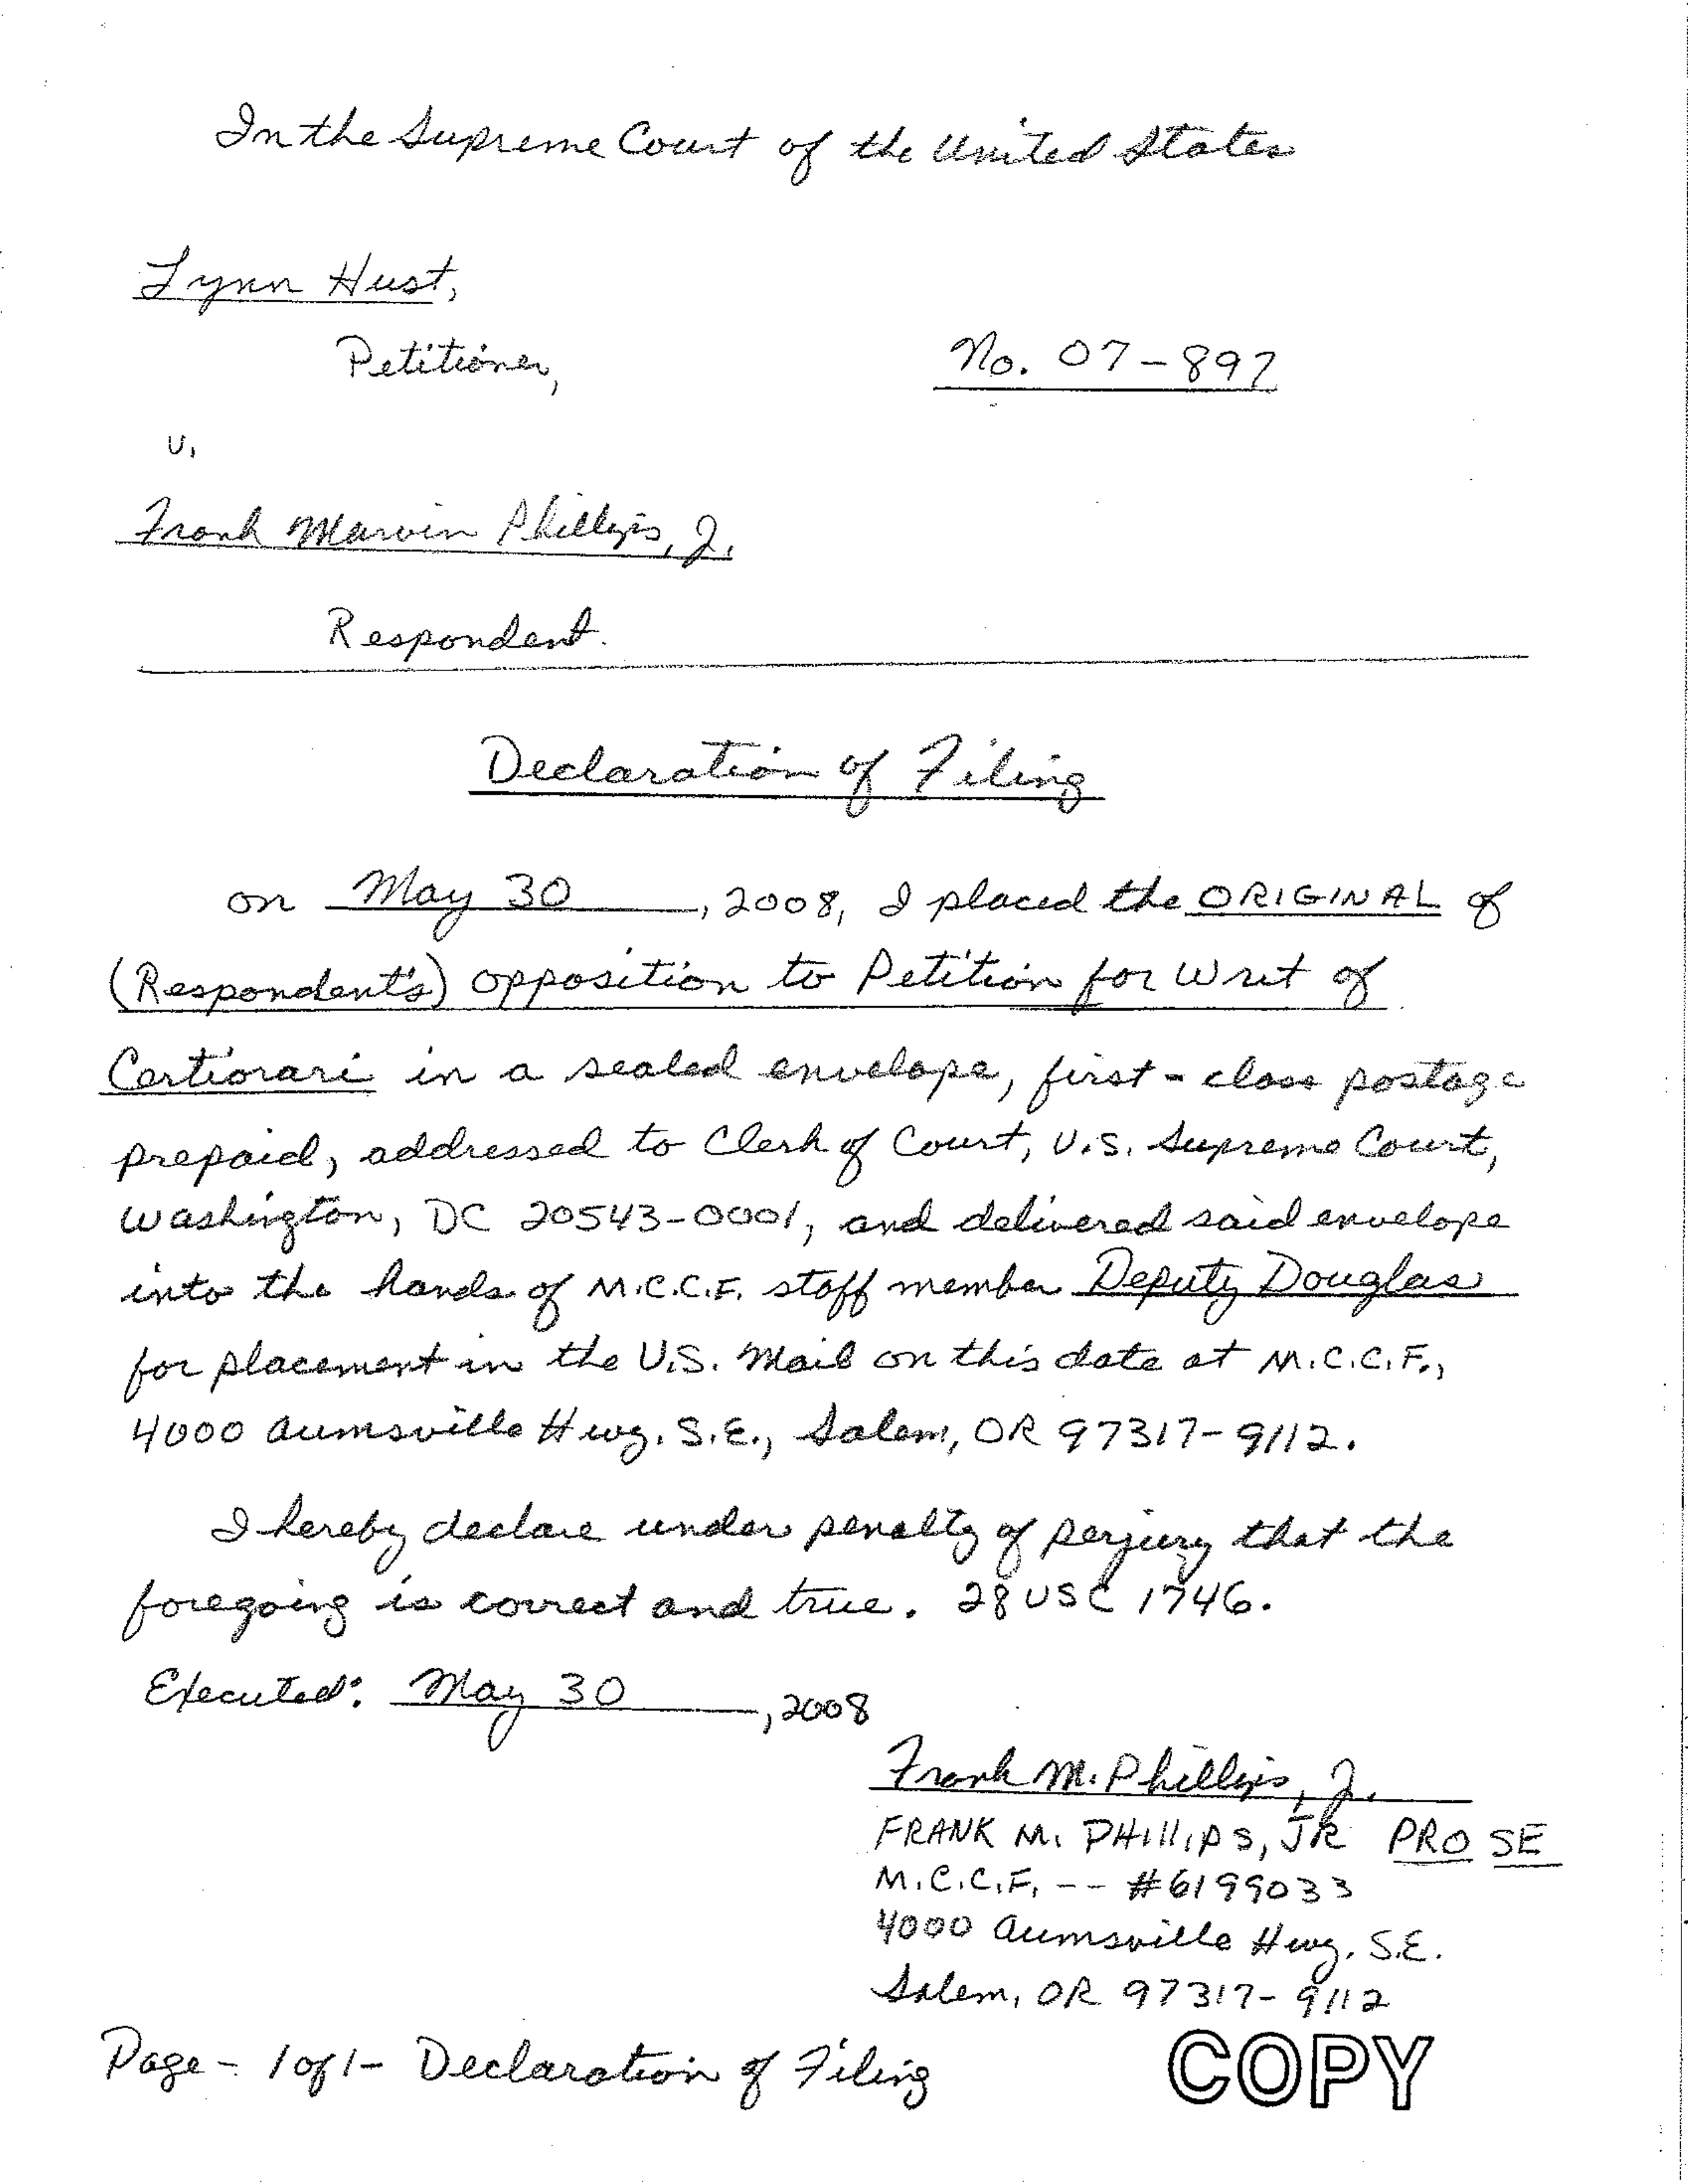 In the Supreme Court of the United States
Lynn Hust,
Petitioner,
No. 07-897
v.
Frank Marvin Phillips, Jr.
Respondent.
Declaration of Filing
on May 30, 2008, I placed the ORIGINAL of
(Respondent's) opposition to Petition for Writ of
Certiorari in a sealed envelope, first-class postage
prepaid, addressed to Clerk of Court, U.S. Supreme Court,
Washington, DC 20543-0001, and delivered said envelope
into the hands of M.C.C.F. staff member Deputy Douglas
for placement in the U.S. Mail on this date at M.C.C.F.,
4000 Aumsville Hwy. S.E., Salem, OR 97317-9112.
I hereby declare under penalty of perjury that the
foregoing is correct and true. 28 USC 1746.
Executed: May 30, 2008
Frank M. Phillips, Jr.
FRANK M. PHILLIPS, JR PRO SE
M.C.C.F. -- #6199033
4000 Aumsville Hwy. S.E.
Salem, OR 97317-9112
Page - 1 of 1 - Declaration of Filing
COPY